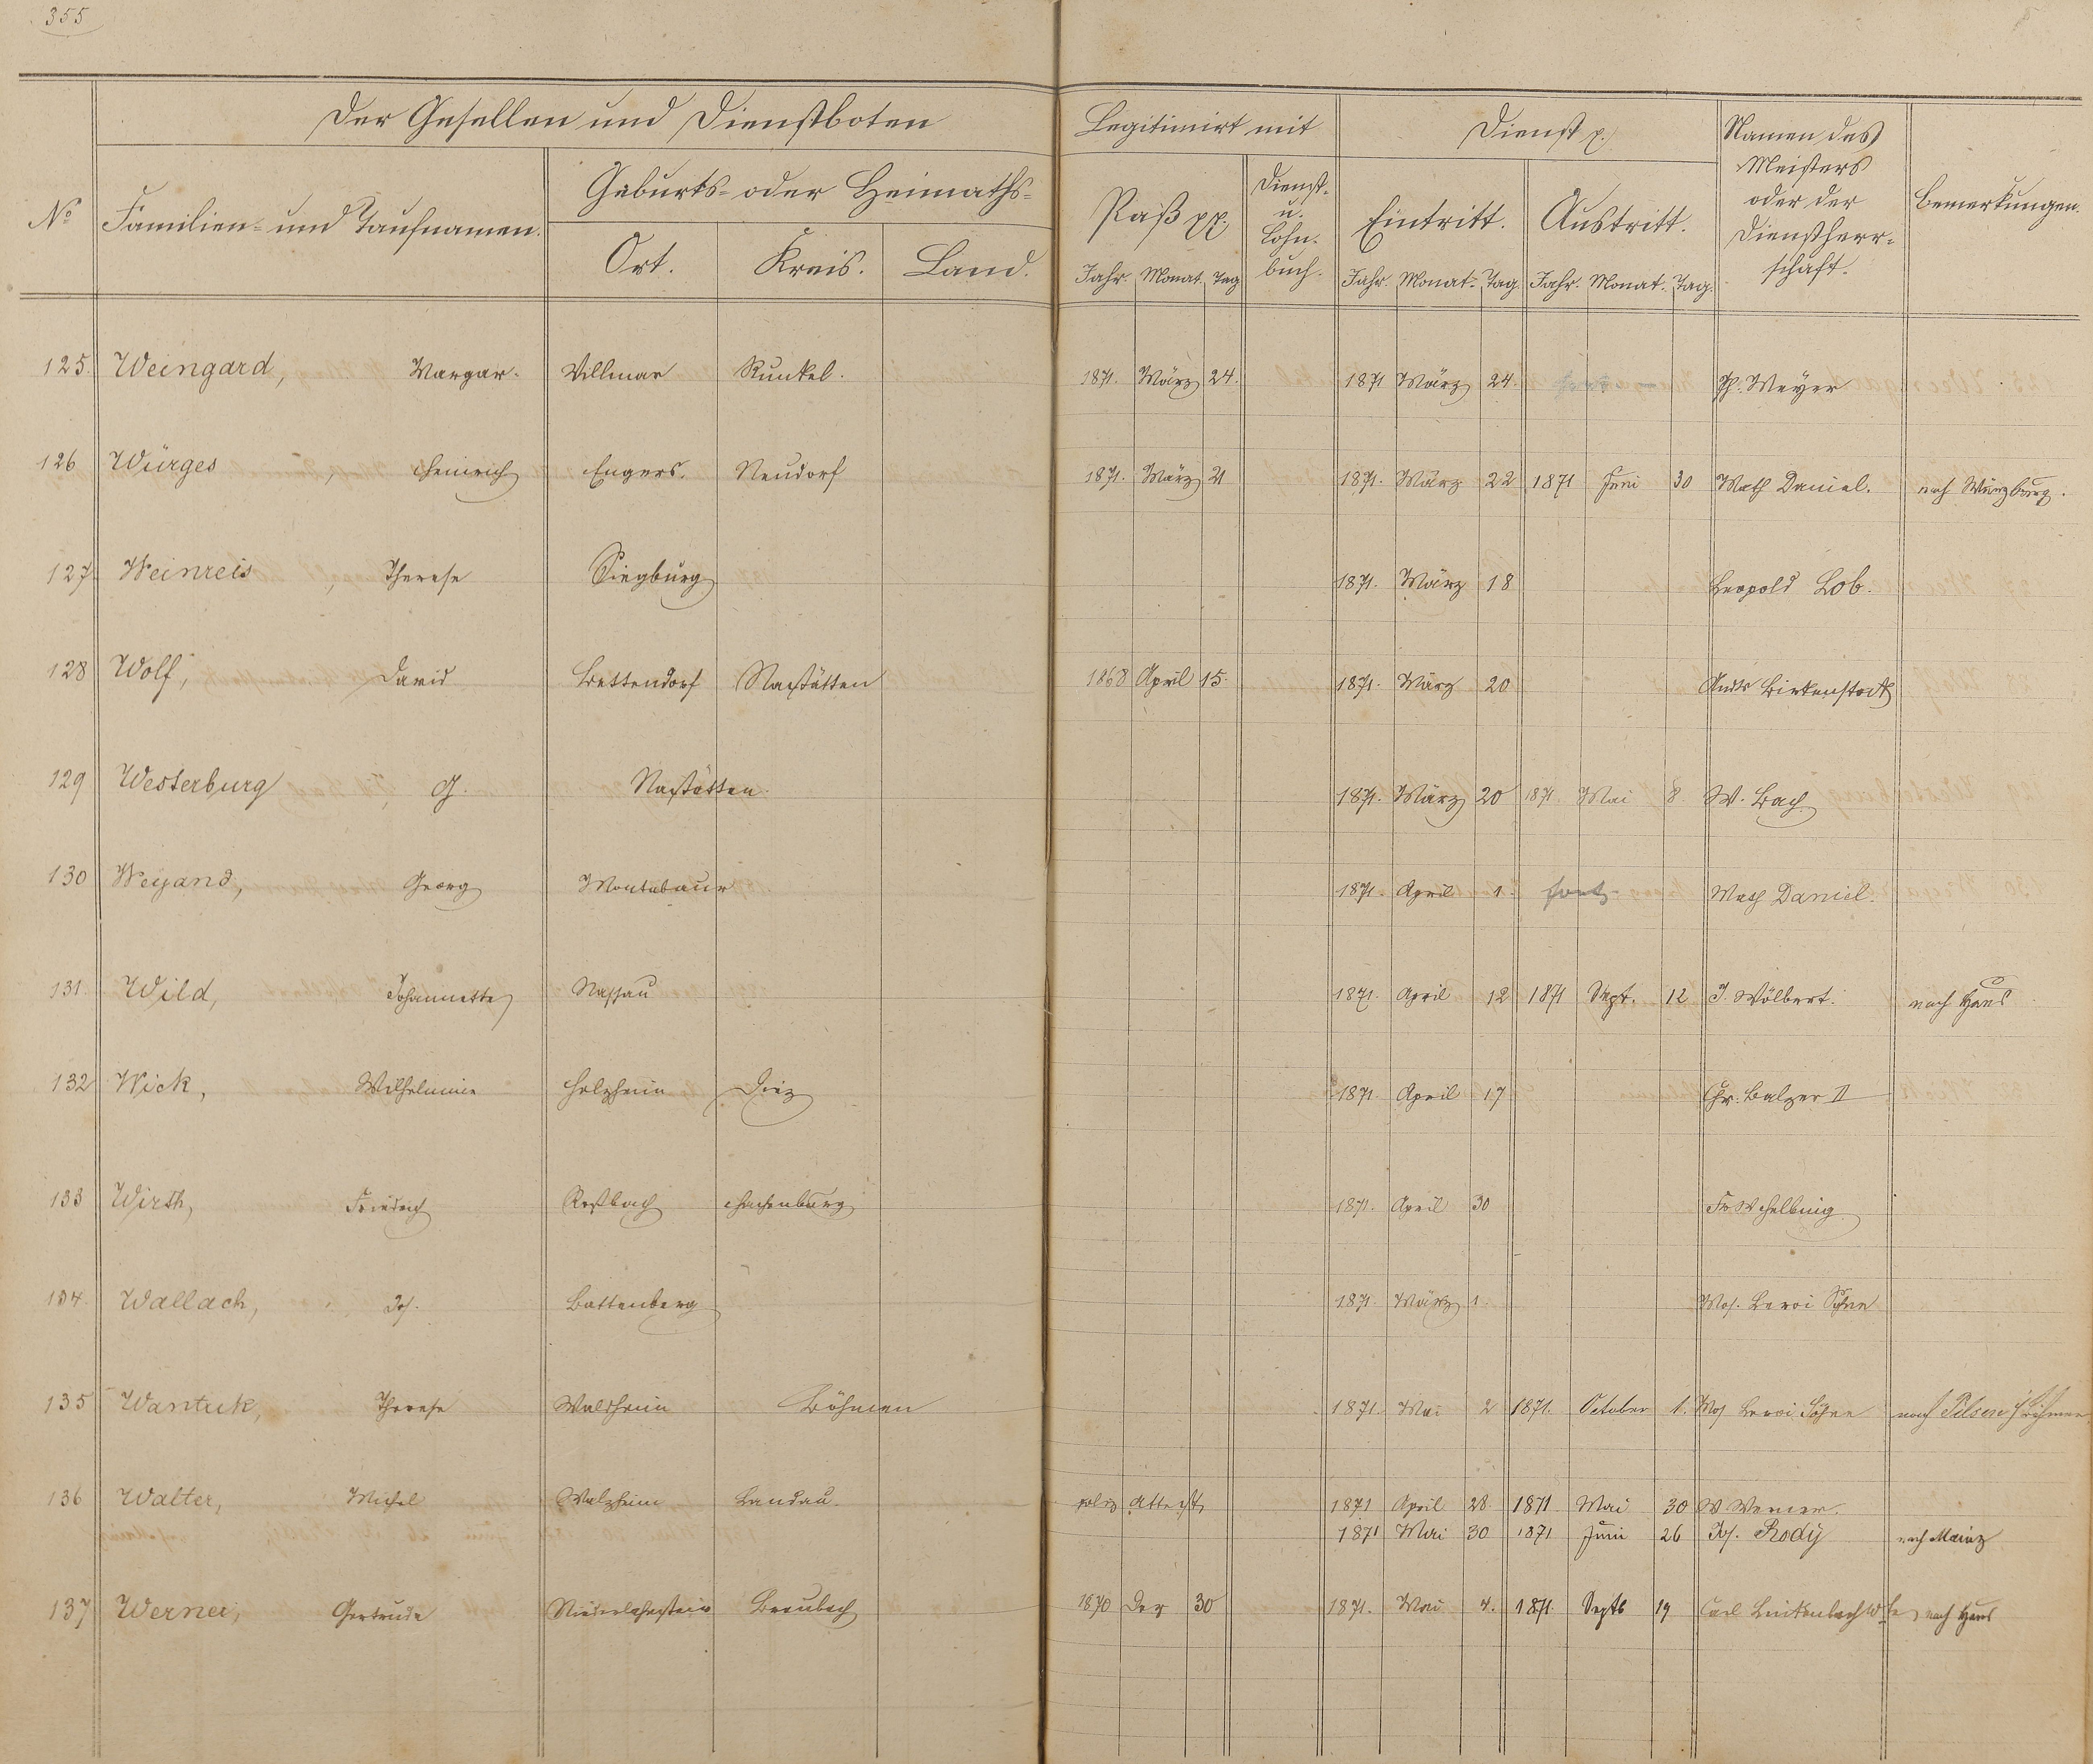 355
Der Gesellen und Dienstboten
Legitimirt mit
Dienst p.
Namen des Meisters oder der Dienstherrschaft.
Bemerkungen.
No
Familien- und Taufnamen.
Geburts- oder Heimaths-
Ort. Kreis. Land.
Paß pp. Dienst- u. Lohn-buch. Eintritt. Austritt.
Jahr. Monat. Tag Jahr. Monat. Tag. Jahr. Monat. Tag.
125. Weingard, Margar. Villmar Runkel. 1871. März 24. 1871 März 24. Ph. Meyer
126 Würges, Heinrich Engers. Neudorf 1871. März 21 1871. März 22 1871 Juni 30 Math Daniel. nach Würzburg.
127. Weinreis, Therese Siegburg 1871. März 18 Leopold Löb.
128 Wolf, David Bettendorf Nastätten 1868 April 15. 1871. März 20 Andr Birkenstock
129 Westerburg, G. Nastätten. 1871. März 20 1871. Mai 8. W. Bach
130 Weyand, Georg Montabaur 1871. April 1. fort Math Daniel.
131. Wild, Johannette Nassau 1871. April 12 1871 Sept. 12 J. Wölbert. nach Haus
132 Wick, Wilhelmine Holzheim Diez 1871. April 17 Chr. Balzer II
133 Wirth, Friedrich Roßbach Hachenburg 1871. April 30 Fr W Helbing
134. Wallach, Jos. Battenberg 1871. März 1. Mos. Leroi Söhne
135 Wantuk, Therese Waldheim Böhmen 1871. Mai 2 1871. October 1. Mos Leroi Söhne nach Pilsen Böhmen
136 Walter, Michel Walzheim Landau. poliz Attest 1871 April 28. 1871 Mai 30 W Werner.
1871 Mai 30 1871 Juni 26 Jos. Rody nach Mainz
137 Werner, Gertrude Niederlahnstein Braubach 1870 Dez 30 1871. Mai 4. 1871. Septb 19 Carl nach Haus